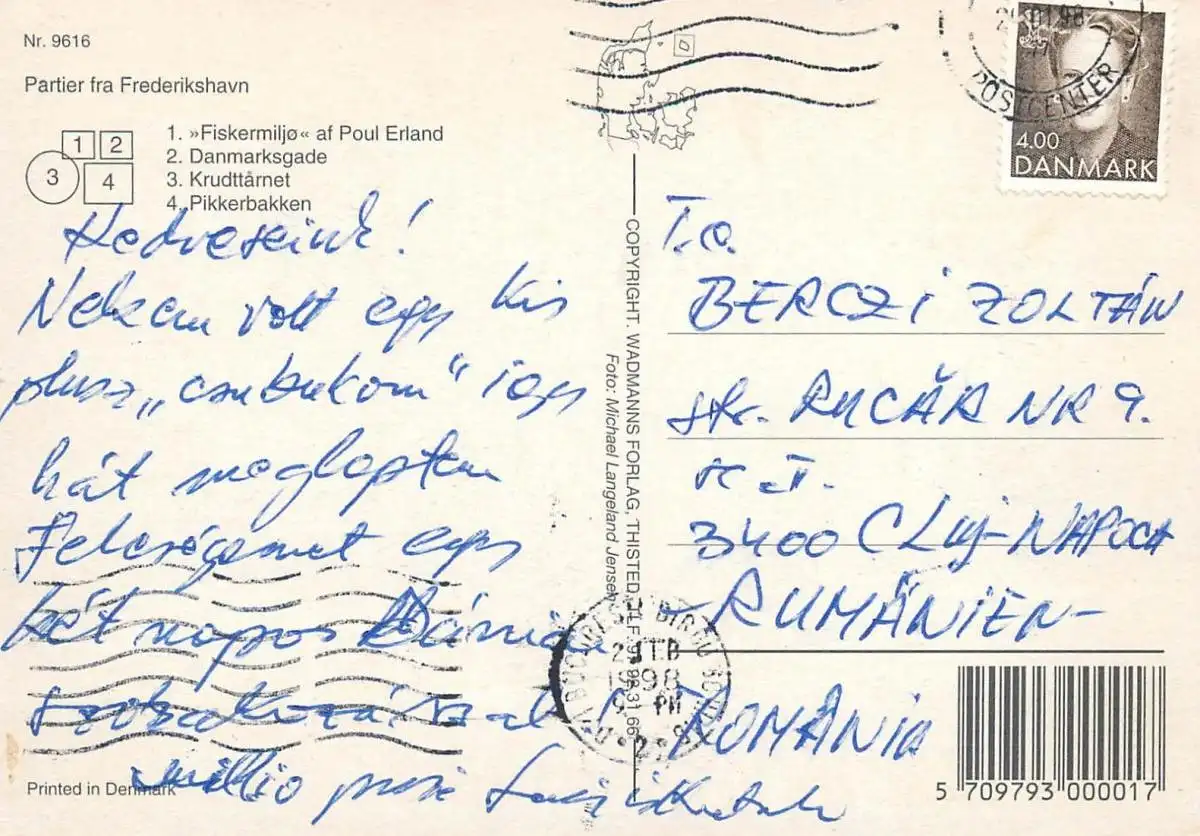 Nr. 9616
Partier fra Frederikshavn
1 2
3 4
1. »Fiskermiljø« af Poul Erland
2. Danmarksgade
3. Krudttårnet
4. Pikkerbakken
Kedveseink!
Nekem volt egy kis
plusz „csubukom" így
hát megleptem
Feleségemet egy
hét napos Dánia
millio puszi
Printed in Denmark
COPYRIGHT. WADMANNS FORLAG, THISTED, TLF.
Foto: Michael Langeland Jensen
POSTCENTER
4.00
DANMARK
T.a.
BERCZI ZOLTÁN
str. RUCĂR NR 9.
3400 CLUJ-NAPOCA
-RUMÄNIEN-
ROMÂNIA
5 709793 000017